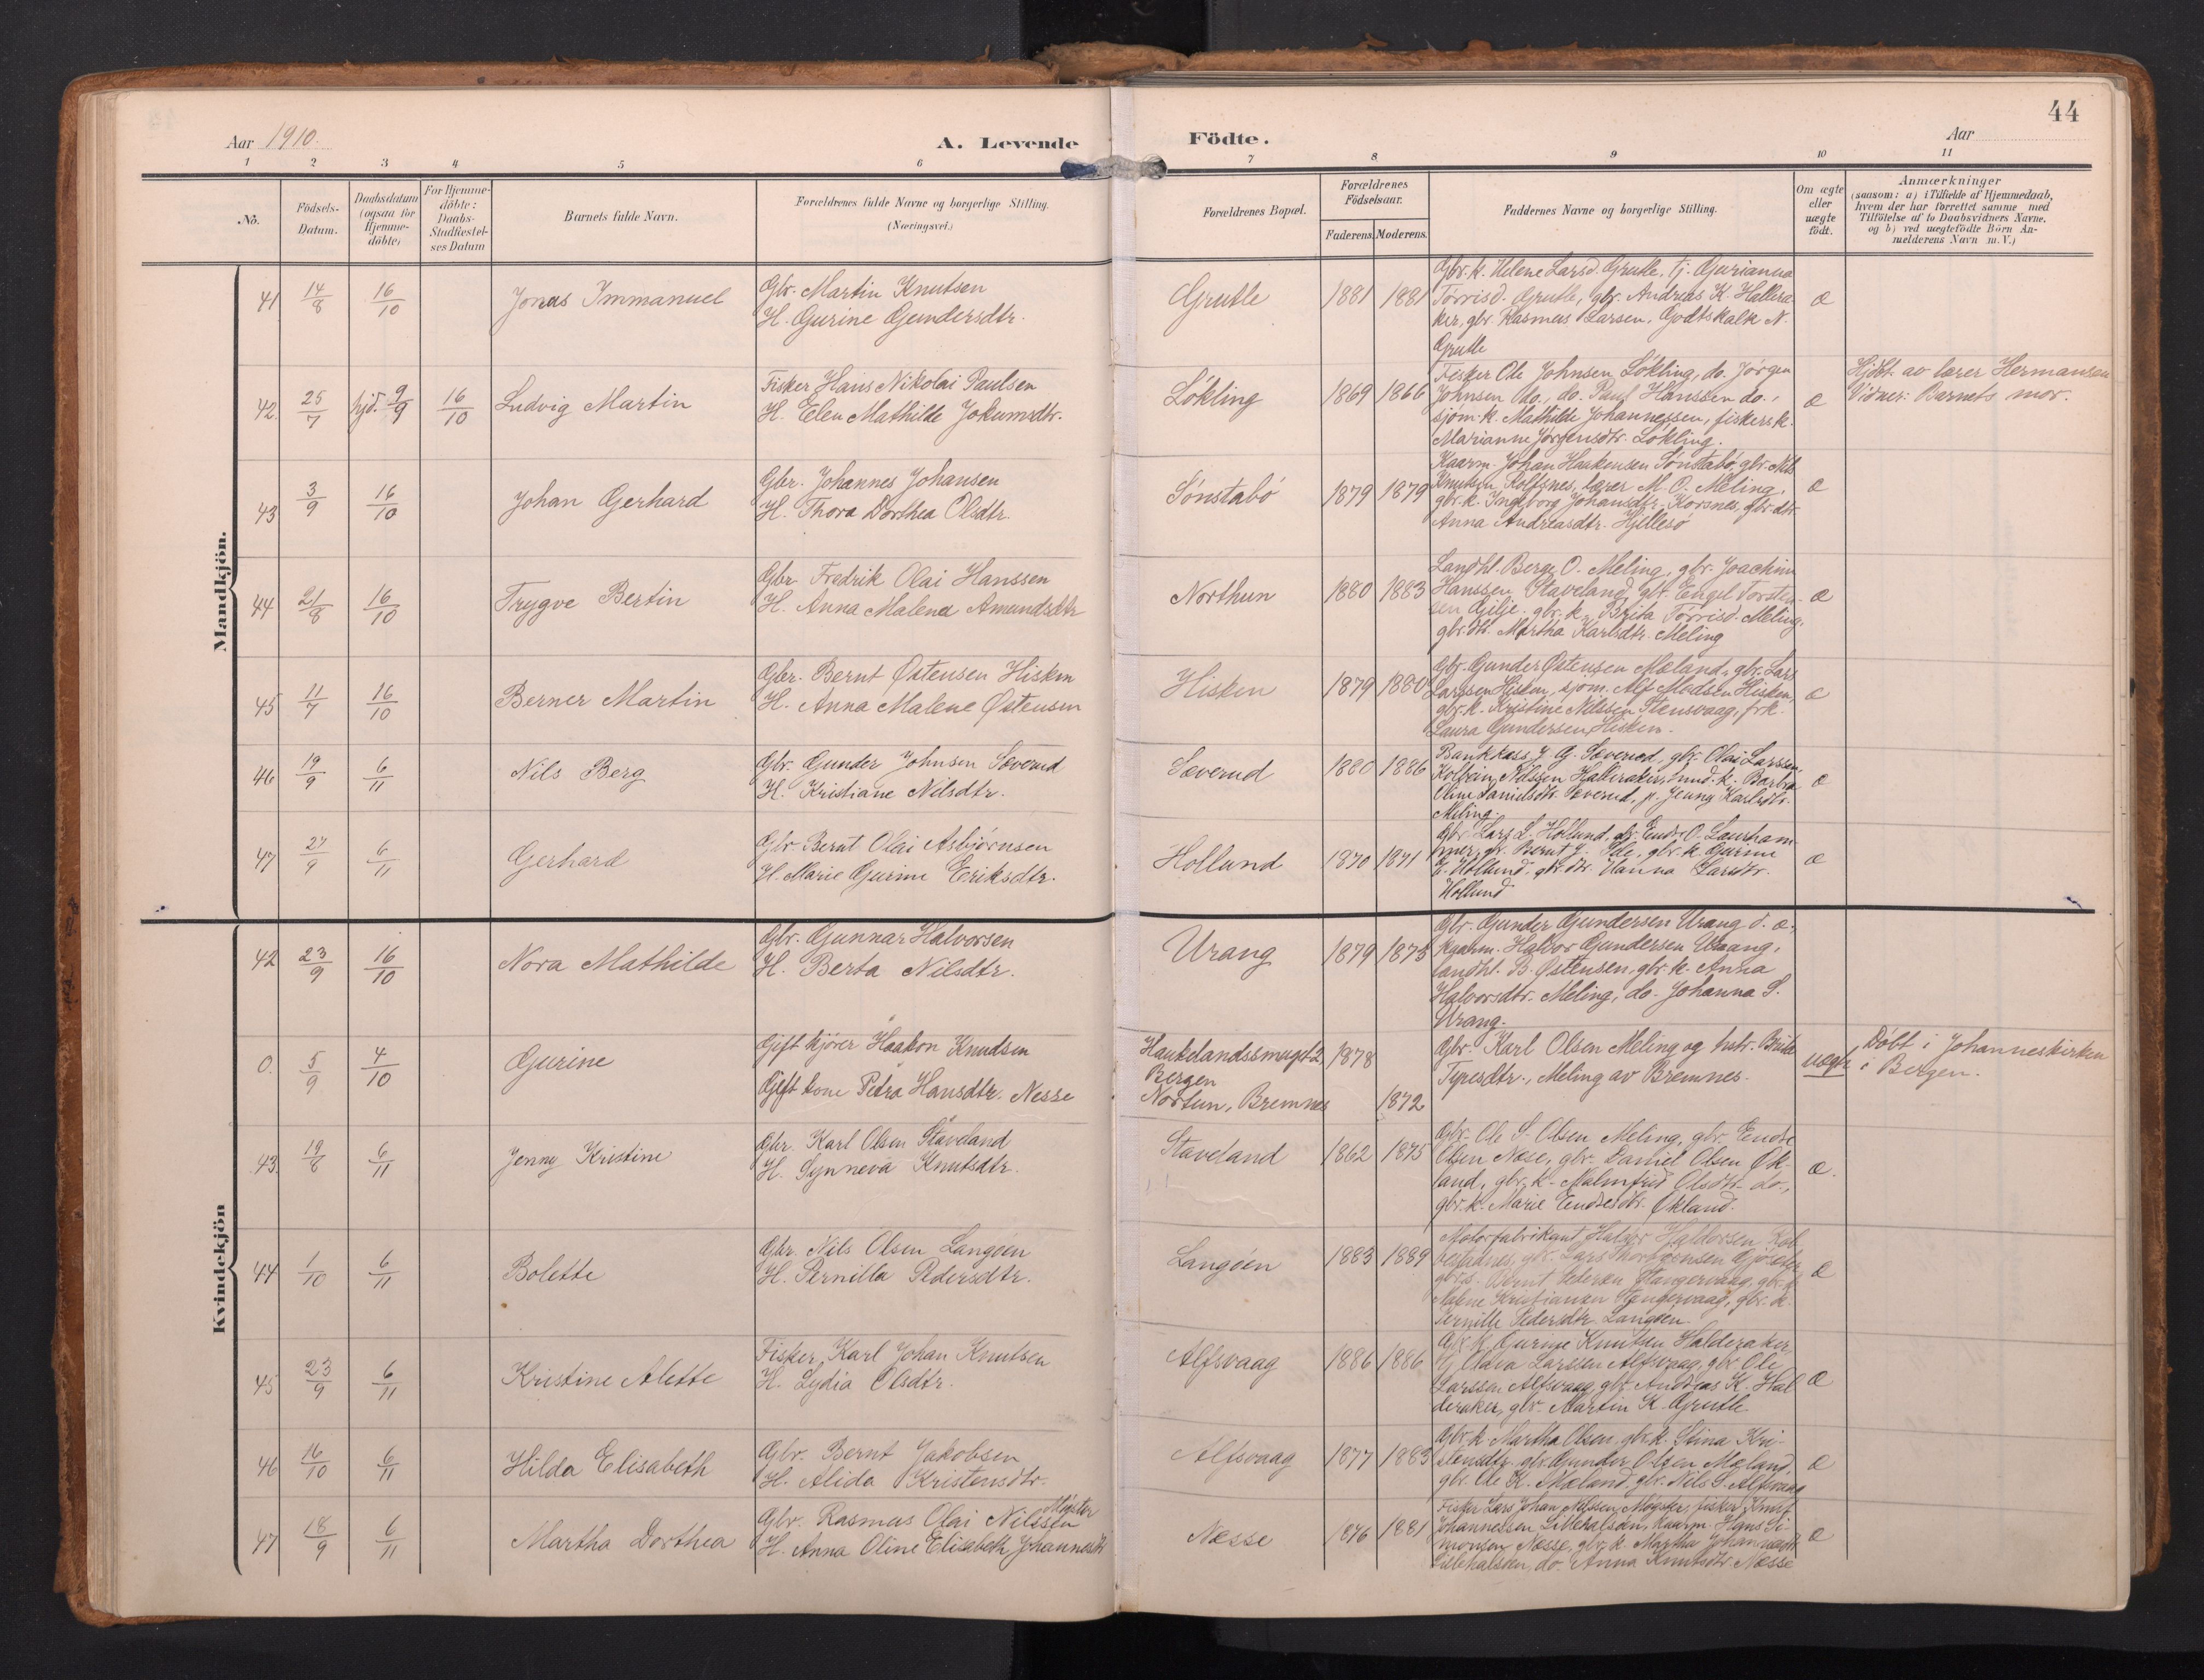 44
Aar 1910.
A. Levende Födte.
Aar
1 2 3 4 5 6 7 8 9 10 11
No.
Födsels-Datum.
Daabsdatum (ogsaa for Hjemme-döbte)
For Hjemme-döbte: Daabs-Stadfæstel-ses Datum
Barnets fulde Navn.
Forældrenes fulde Navne og borgerlige Stilling. (Næringsvei.)
Forældrenes Bopæl.
Forældrenes Födselsaar.
Faderens. Moderens.
Faddernes Navne og borgerlige Stilling.
Om ægte eller uægte födt.
Anmærkninger
(saasom: a) i Tilfælde af Hjemmedaab,
hvem der har forrettet samme med
Tilföielse af to Daabsvidners Navne,
og b) ved uægtefödte Börn An-
melderens Navn m. V.)
Mandkjön.
41 14/8 16/10 Jonas Immanuel
Gbr. Martin Knutsen
H. Gurine Gundersdtr.
Grutle 1881 1881
Gbr. k. Helene Larsd. Grutle, tj. Gurianna
Tørrisd. Grutle, gbr. Andreas K. Hallera-
ker, gbr. Rasmus Larsen, Godtskalk N.
Grutle
æ
42 25/7 hjd. 9/9 16/10 Ludvig Martin
Fisker Hans Nikolai Paulsen
H. Elen Mathilde Jokumsdtr.
Løkling 1869 1866
Fisker Ole Johnsen Løkling, do. Jørgen
Johnsen do., do. Paul Hanssen do.,
sjøm. k. Mathilde Johannessen, fiskersk.
Marianne Jørgensdtr. Løkling.
æ
Hjdbt. av lærer Hermansen
Vidner: Barnets mor.
43 3/9 16/10 Johan Gerhard
Gbr. Johannes Johansen
H. Thora Dorthea Olsdtr.
Sønstabø 1879 1879
Kaarm. Johan Haakensen Sønstabø, gbr. Nils
Knutsen Rolfsnes, lærer M. O. Meling,
gbr. k. Ingeborg Johansdtr. Korsnes, gbr. dtr.
Anna Andreasdtr. Hjellesø
æ
44 21/8 16/10 Trygve Bertin
Gbr. Fredrik Olai Hanssen
H. Anna Malena Amundsdtr
Northun 1880 1883
Landhl. Berge O. Meling, gbr. Joachim
Hanssen Staveland, gbr. Engel Torsten-
sen Gilje, gbr. k. Brita Tørrisd. Meling,
gbr. dtr. Martha Karlsdtr. Meling
æ
45 11/7 16/10 Berner Martin
Gbr. Bernt Østensen Hisken
H. Anna Malene Østensen
Hisken 1879 1880
Gbr. Gunder Østensen Mæland, gbr. Lars
Larssen Hisken, sjøm. Alf Madsen Hisken,
gbr. k. Kristine Nilssen Steensvaag, frk.
Laura Gundersen Hisken.
æ
46 19/9 6/11 Nils Berg
Gbr. Gunder Johnsen Sæverud
H. Kristiane Nilsdtr.
Sæverud 1880 1886
Bankkass. J. G. Sæverud, gbr. Olai Larssen,
Kolbein Nilssen Halleraker, k. Barbra
Oline Danielsdtr. Sæverud, p. Jenny Karlsdtr.
Meling.
æ
47 27/9 6/11 Gerhard
Gbr. Bernt Olai Asbjørnsen
H. Marie Gurine Eriksdtr.
Hollund 1870 1871
Gbr. Lars L. Hollund, gbr. Endre O. Laurham-
mer, gbr. Bernt J. Ide, gbr. k. Gurine
E. Hollund, gbr. dtr. Hanna Larsdtr.
Hollund
æ
Kvindekjön
42 23/9 16/10 Nora Mathilde
Gbr. Gunnar Halvorsen
H. Berta Nilsdtr.
Urang 1879 1875
Gbr. Gunder Gundersen Urang d. æ.
kaarm. Halvor Gundersen Urang,
landhl. B. Østensen, gbr. k. Anna
Halvorsdtr. Meling, do. Johanna S.
Urang.
0. 5/9 4/10 Gurine
Gift kjører Haakon Knudsen
Gift kone Petra Hansdtr. Nesse
Haukelandssmuget 2,
Bergen
Nortun, Bremnes
1878 1872
Gbr. Karl Olsen Meling og hstr. Brita
Tyresdtr., Meling av Bremnes.
uægte
Døbt i Johanneskirken
i Bergen.
43 19/8 6/11 Jenny Kristine
Gbr. Karl Olsen Staveland
H. Synneva Knutsdtr.
Staveland 1862 1875
Gbr. Ole S. Olsen Meling, gbr. Endre
Olsen Næse, gbr. Daniel Olsen Øk-
land, gbr. k. Malmfrid Olsdtr. do.,
gbr. k. Marie Endresdtr. Økland.
æ.
44 1/10 6/11 Bolette
Gbr. Nils Olsen Langøen
H. Pernilla Pedersdtr.
Langøen 1883 1889
Motorfabrikant Halvor Haldorsen
gbr. Lars Thorbjørnsen
Bernt Pedersen Stangervaag, gbr. k.
Malene Kristiansen Stangervaag, gbr. k.
Pernille Pedersdtr. Langøen
æ
45 23/9 6/11 Kristine Alette
Fisker Karl Johan Knutsen
H. Lydia Olsdtr.
Alfsvaag 1886 1886
Gbr. k. Gurine Knutsen Halderaker,
tj. Olava Larssen Alfsvaag, gbr. Ole
Larssen Alfsvaag, gbr. Andreas K. Hal-
deraker, gbr. Martin K. Grutle
æ
46 16/10 6/11 Hilda Elisabeth
Gbr. Bernt Jakobsen
H. Alida Kristensdtr.
Alfsvaag 1877 1883
Gbr. k. Martha Olsen, gbr. k. Stina Kri-
stensdtr. gbr. Gunder Olsen Mæland,
gbr. Ole K. Mæland, gbr. Nils S. Alfsvaag
æ
47 18/9 6/11 Martha Dorthea
Gbr. Rasmus Olai Nilssen Møgster
H. Anna Oline Elisabeth Johannesdtr
Næsse 1876 1881
Fisker Lars Johan Nilssen Møgster, fisker Knut
Johannessen Littlehalsøen, kaarm. Hans Si-
monsen Næsse, gbr. k. Martha Johannesdtr.
Littlehalsøen, do. Anna Knutsdtr. Næsse
æ